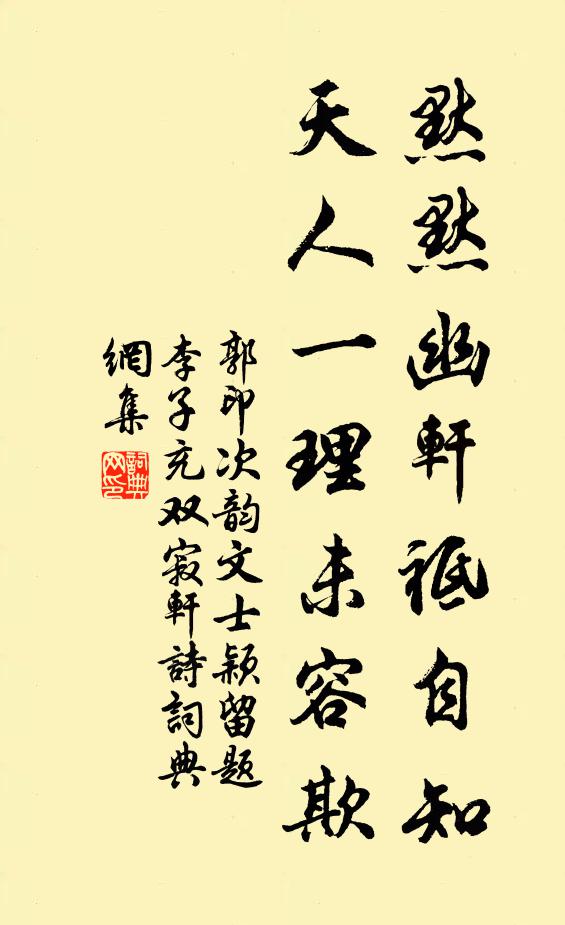 默默幽軒祗自知
天人一理未容欺
郭印次韵文士颖留题
李子充双寂軒詩詞典
網集
詞典網印